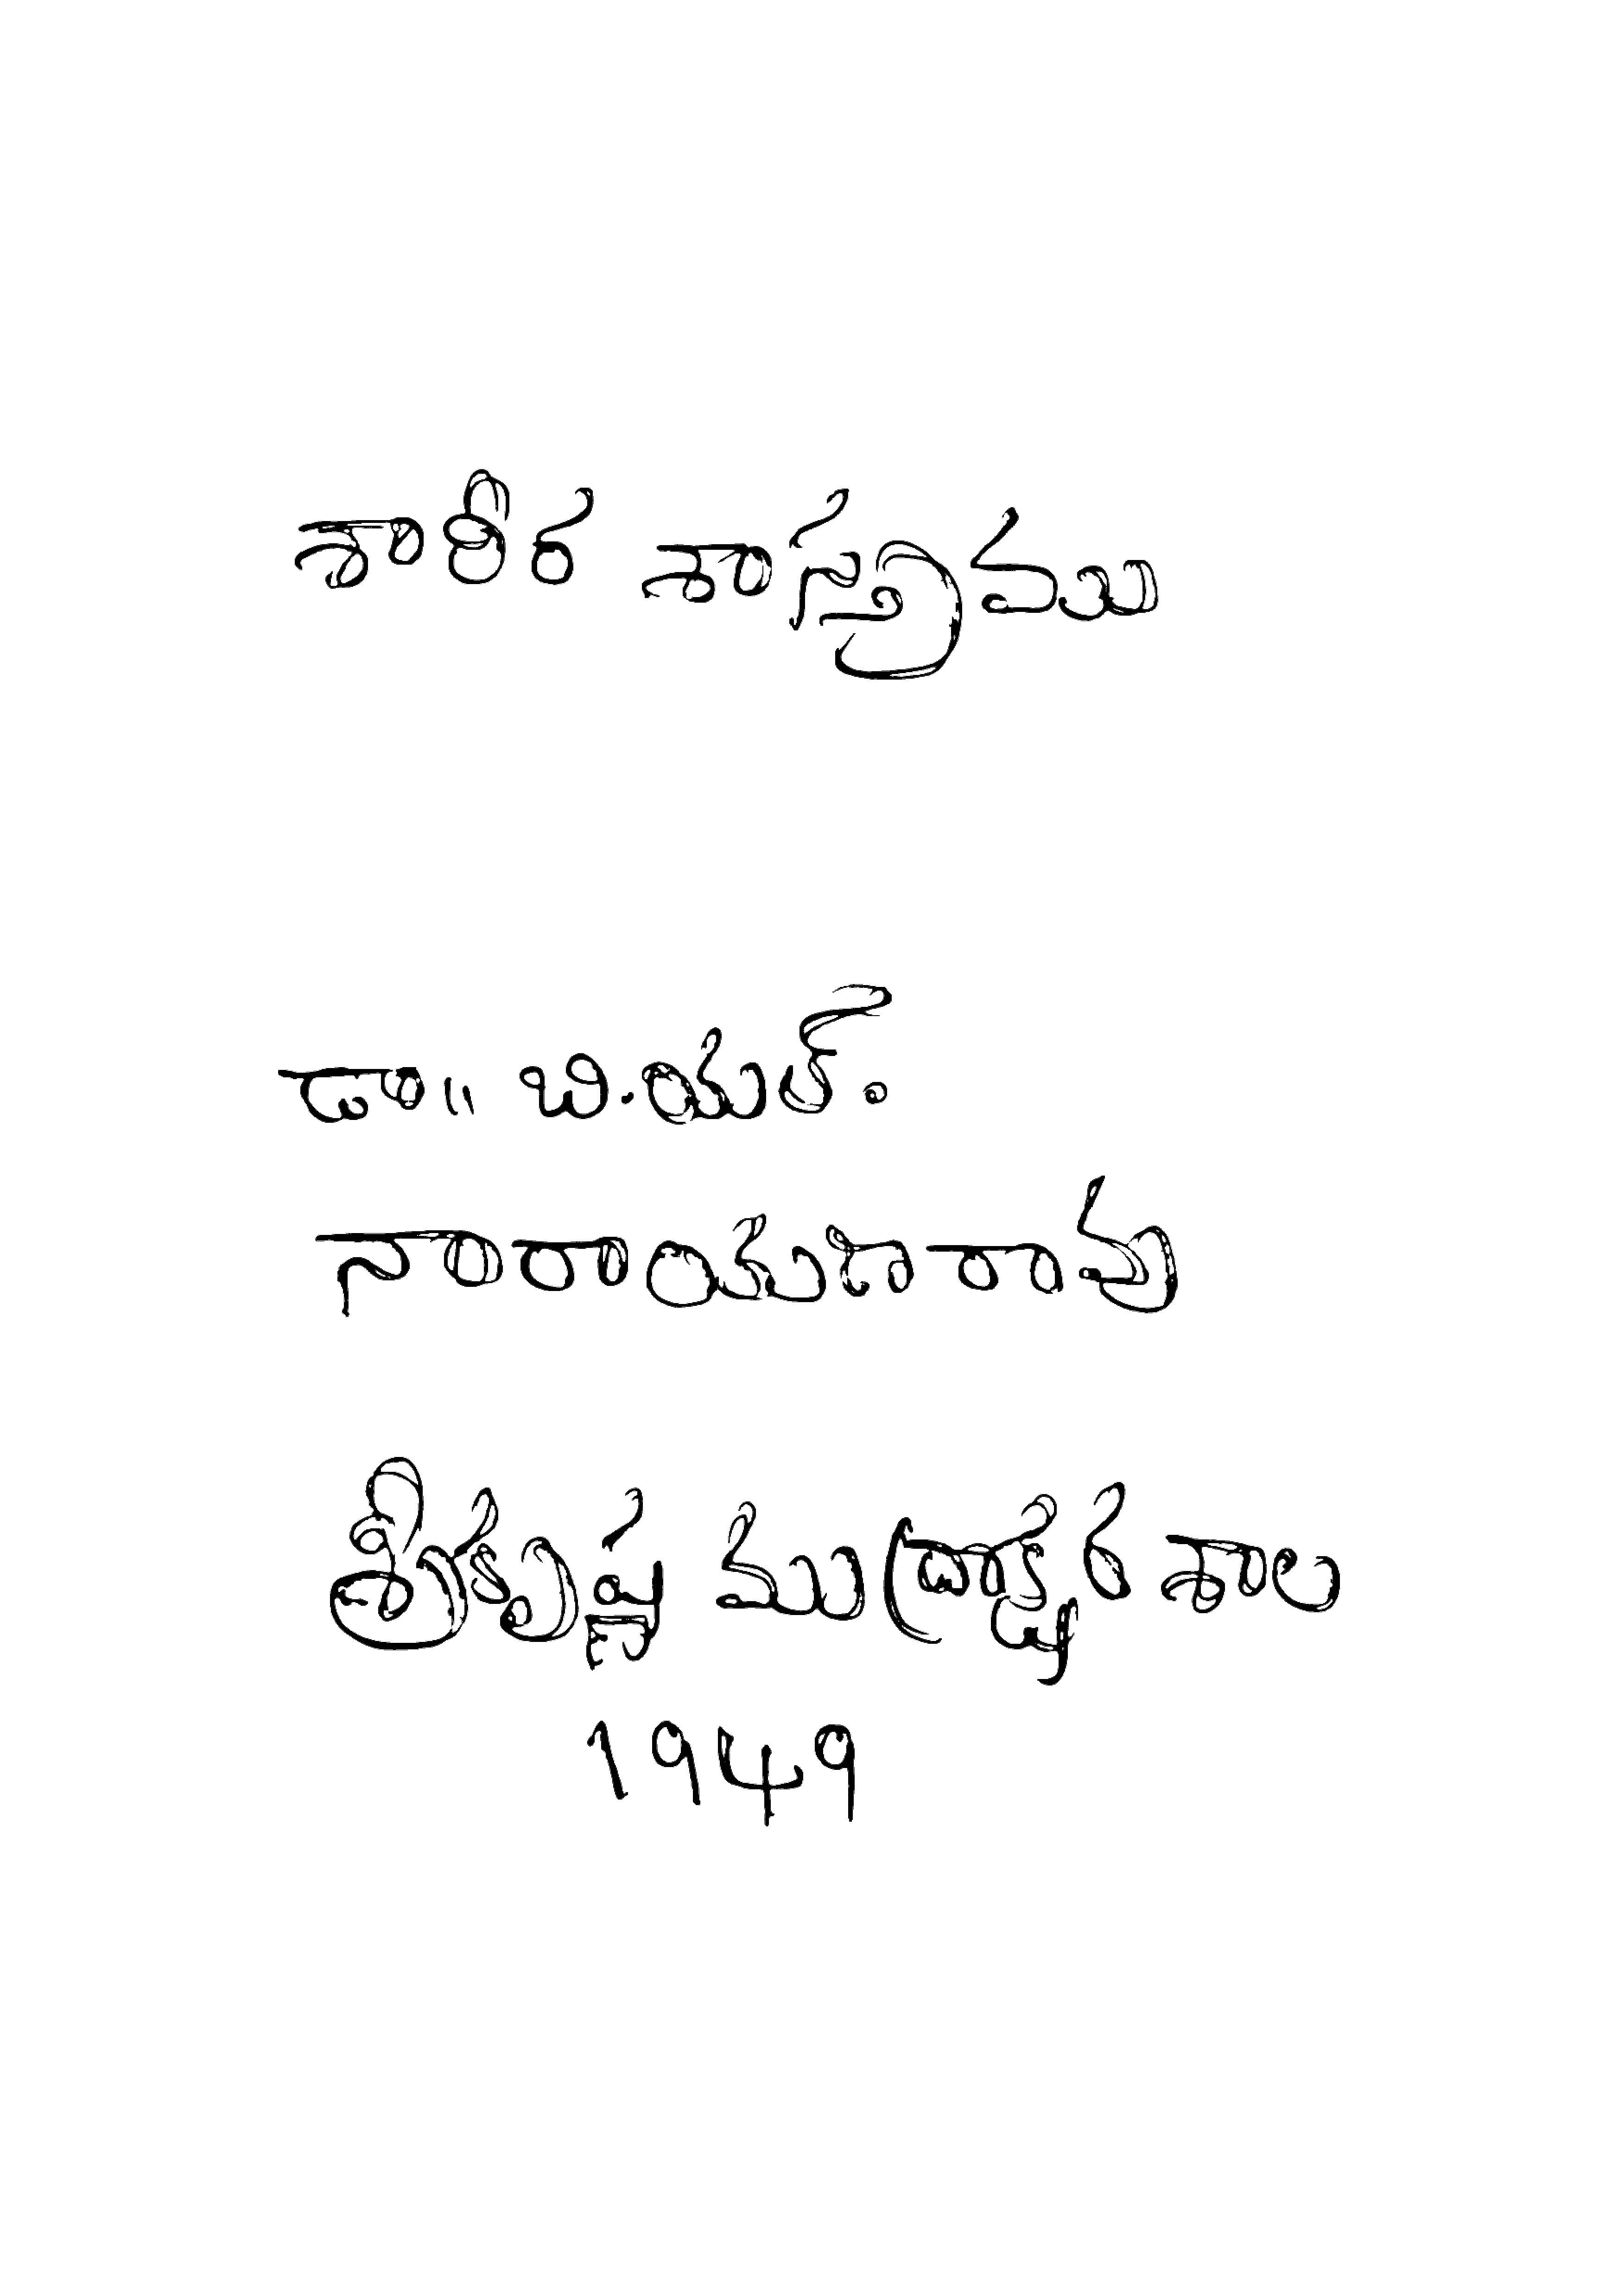 శారీర శాస్త్రము
డా॥ బి.యల్.
నారాయణరావు
శ్రీకృష్ణ ముద్రాక్షరశాల
1949